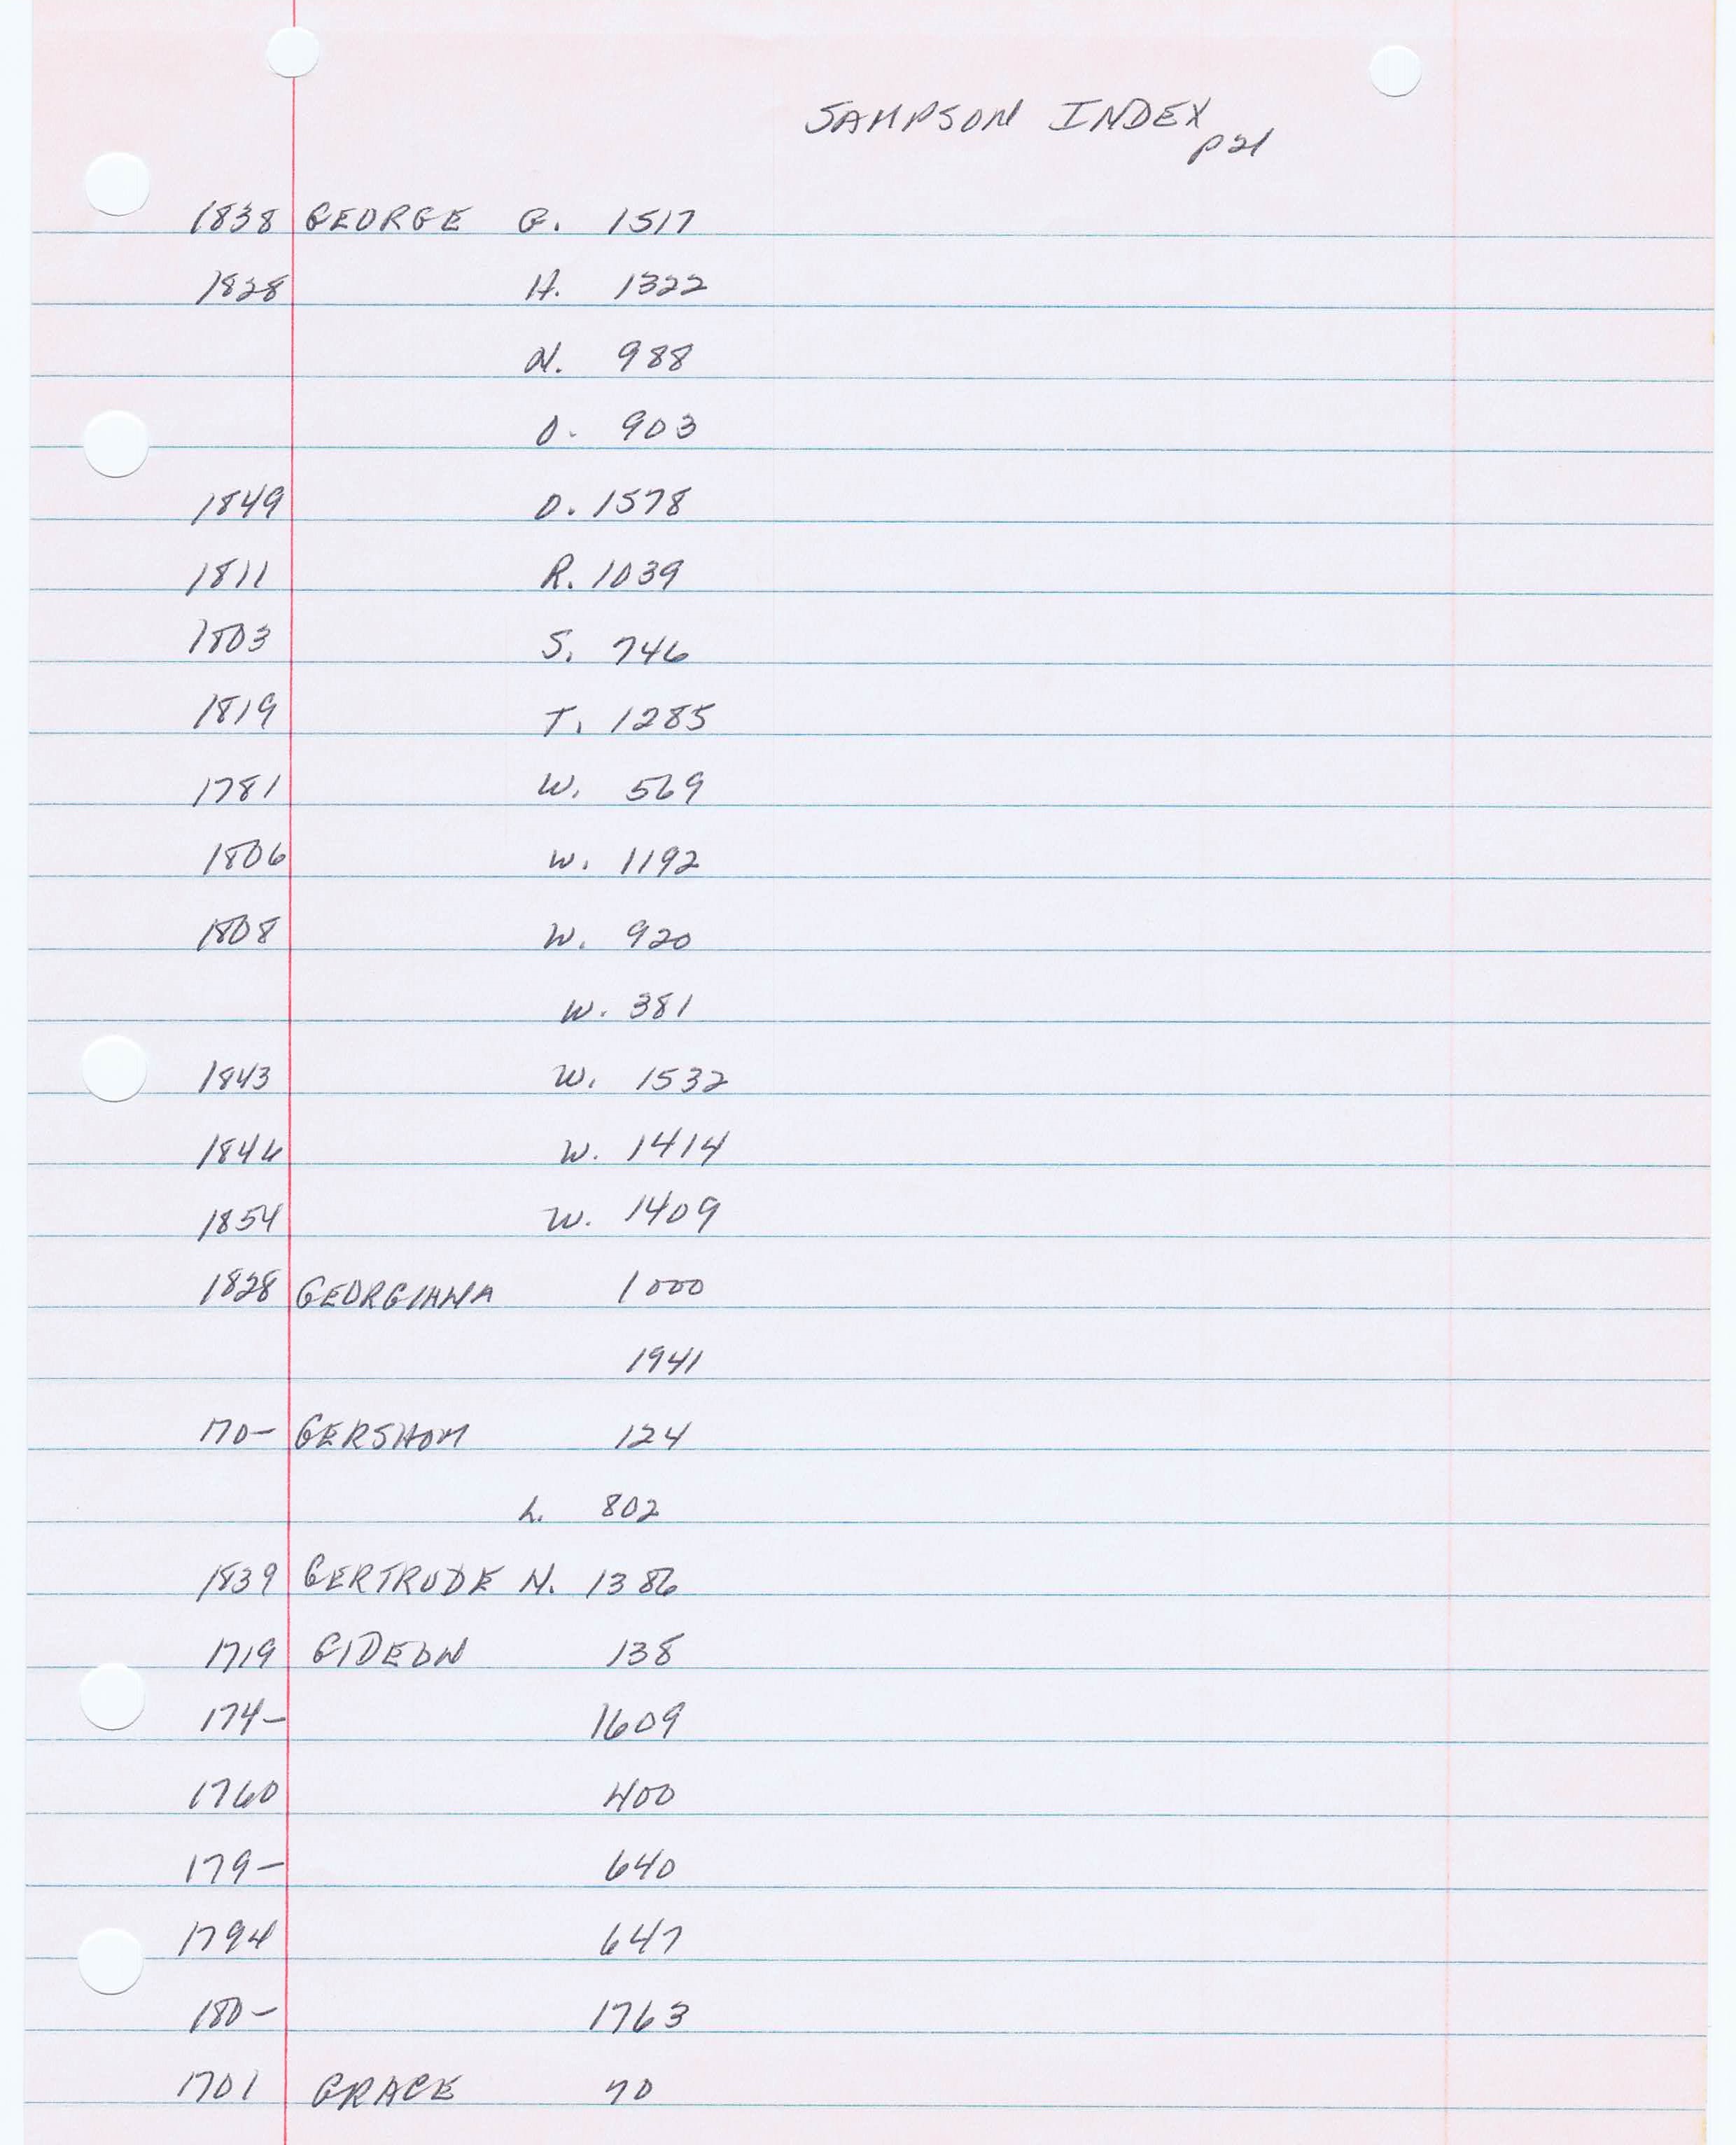 SAMPSON INDEX
p 21
1838 GEORGE G. 1517
1828 H. 1322
N. 988
O. 903
1849 O. 1578
1811 R. 1039
1803 S. 746
1819 T. 1285
1781 W. 569
1806 W. 1192
1808 W. 920
W. 381
1843 W. 1532
1846 W. 1414
1854 W. 1409
1828 GEORGIANA 1000
1941
170- GERSHOM 124
L. 802
1839 GERTRUDE N. 1386
1719 GIDEON 138
174- 1609
1760 400
179- 640
1794 647
180- 1763
1701 GRACE 70